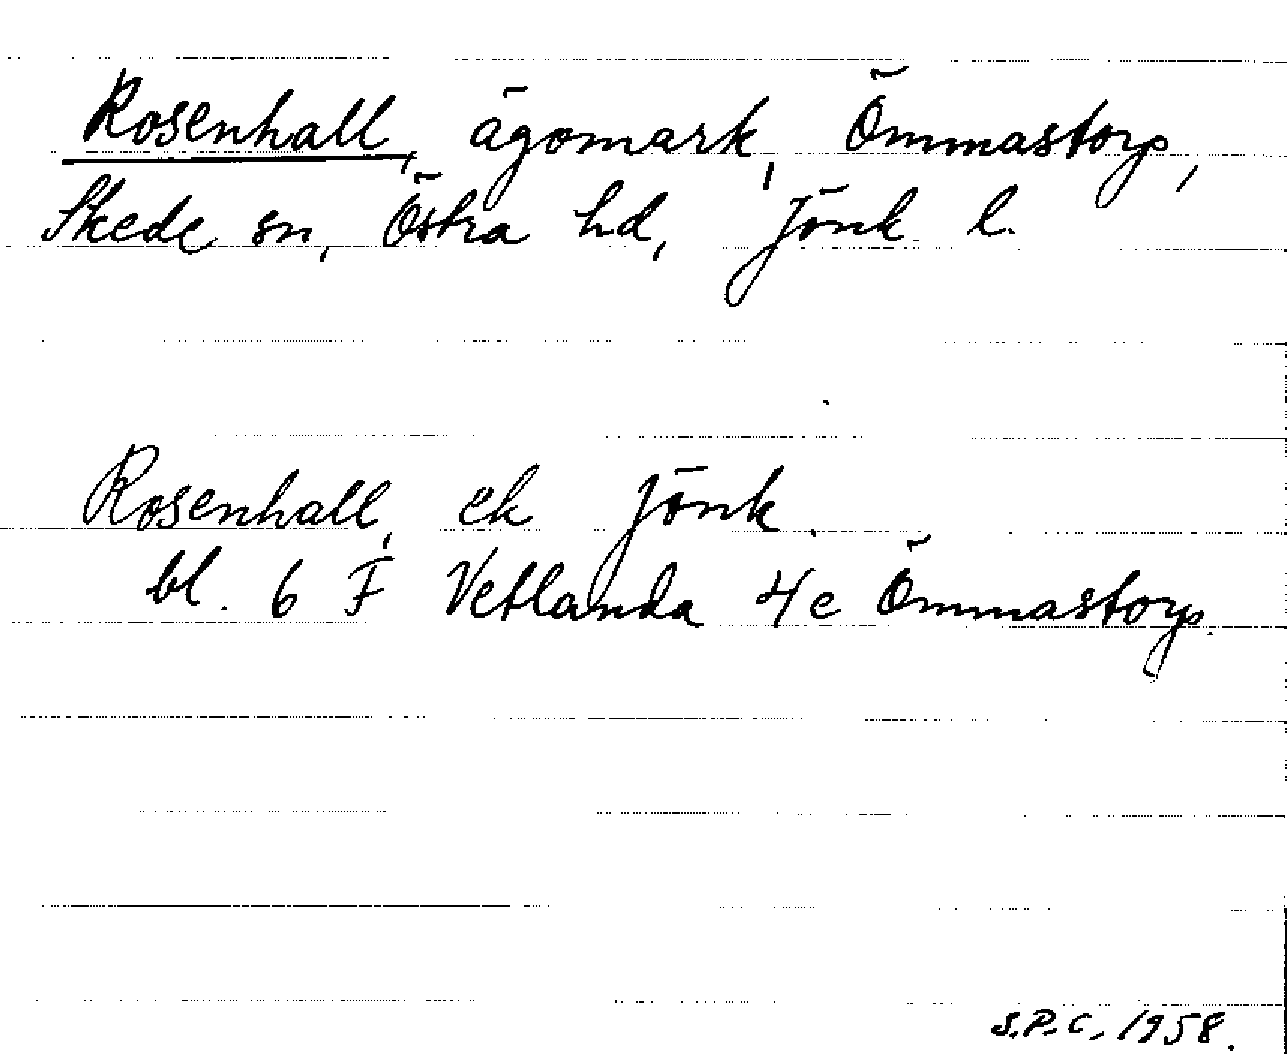 Rosenhall, ägomark, Ömmastorp,
Skede sn, Östra hd, Jönk l.
Rosenhall, ek Jönk.
bl. 6 F Vetlanda 4c Ömmastorp.
S.P.C. 1958.